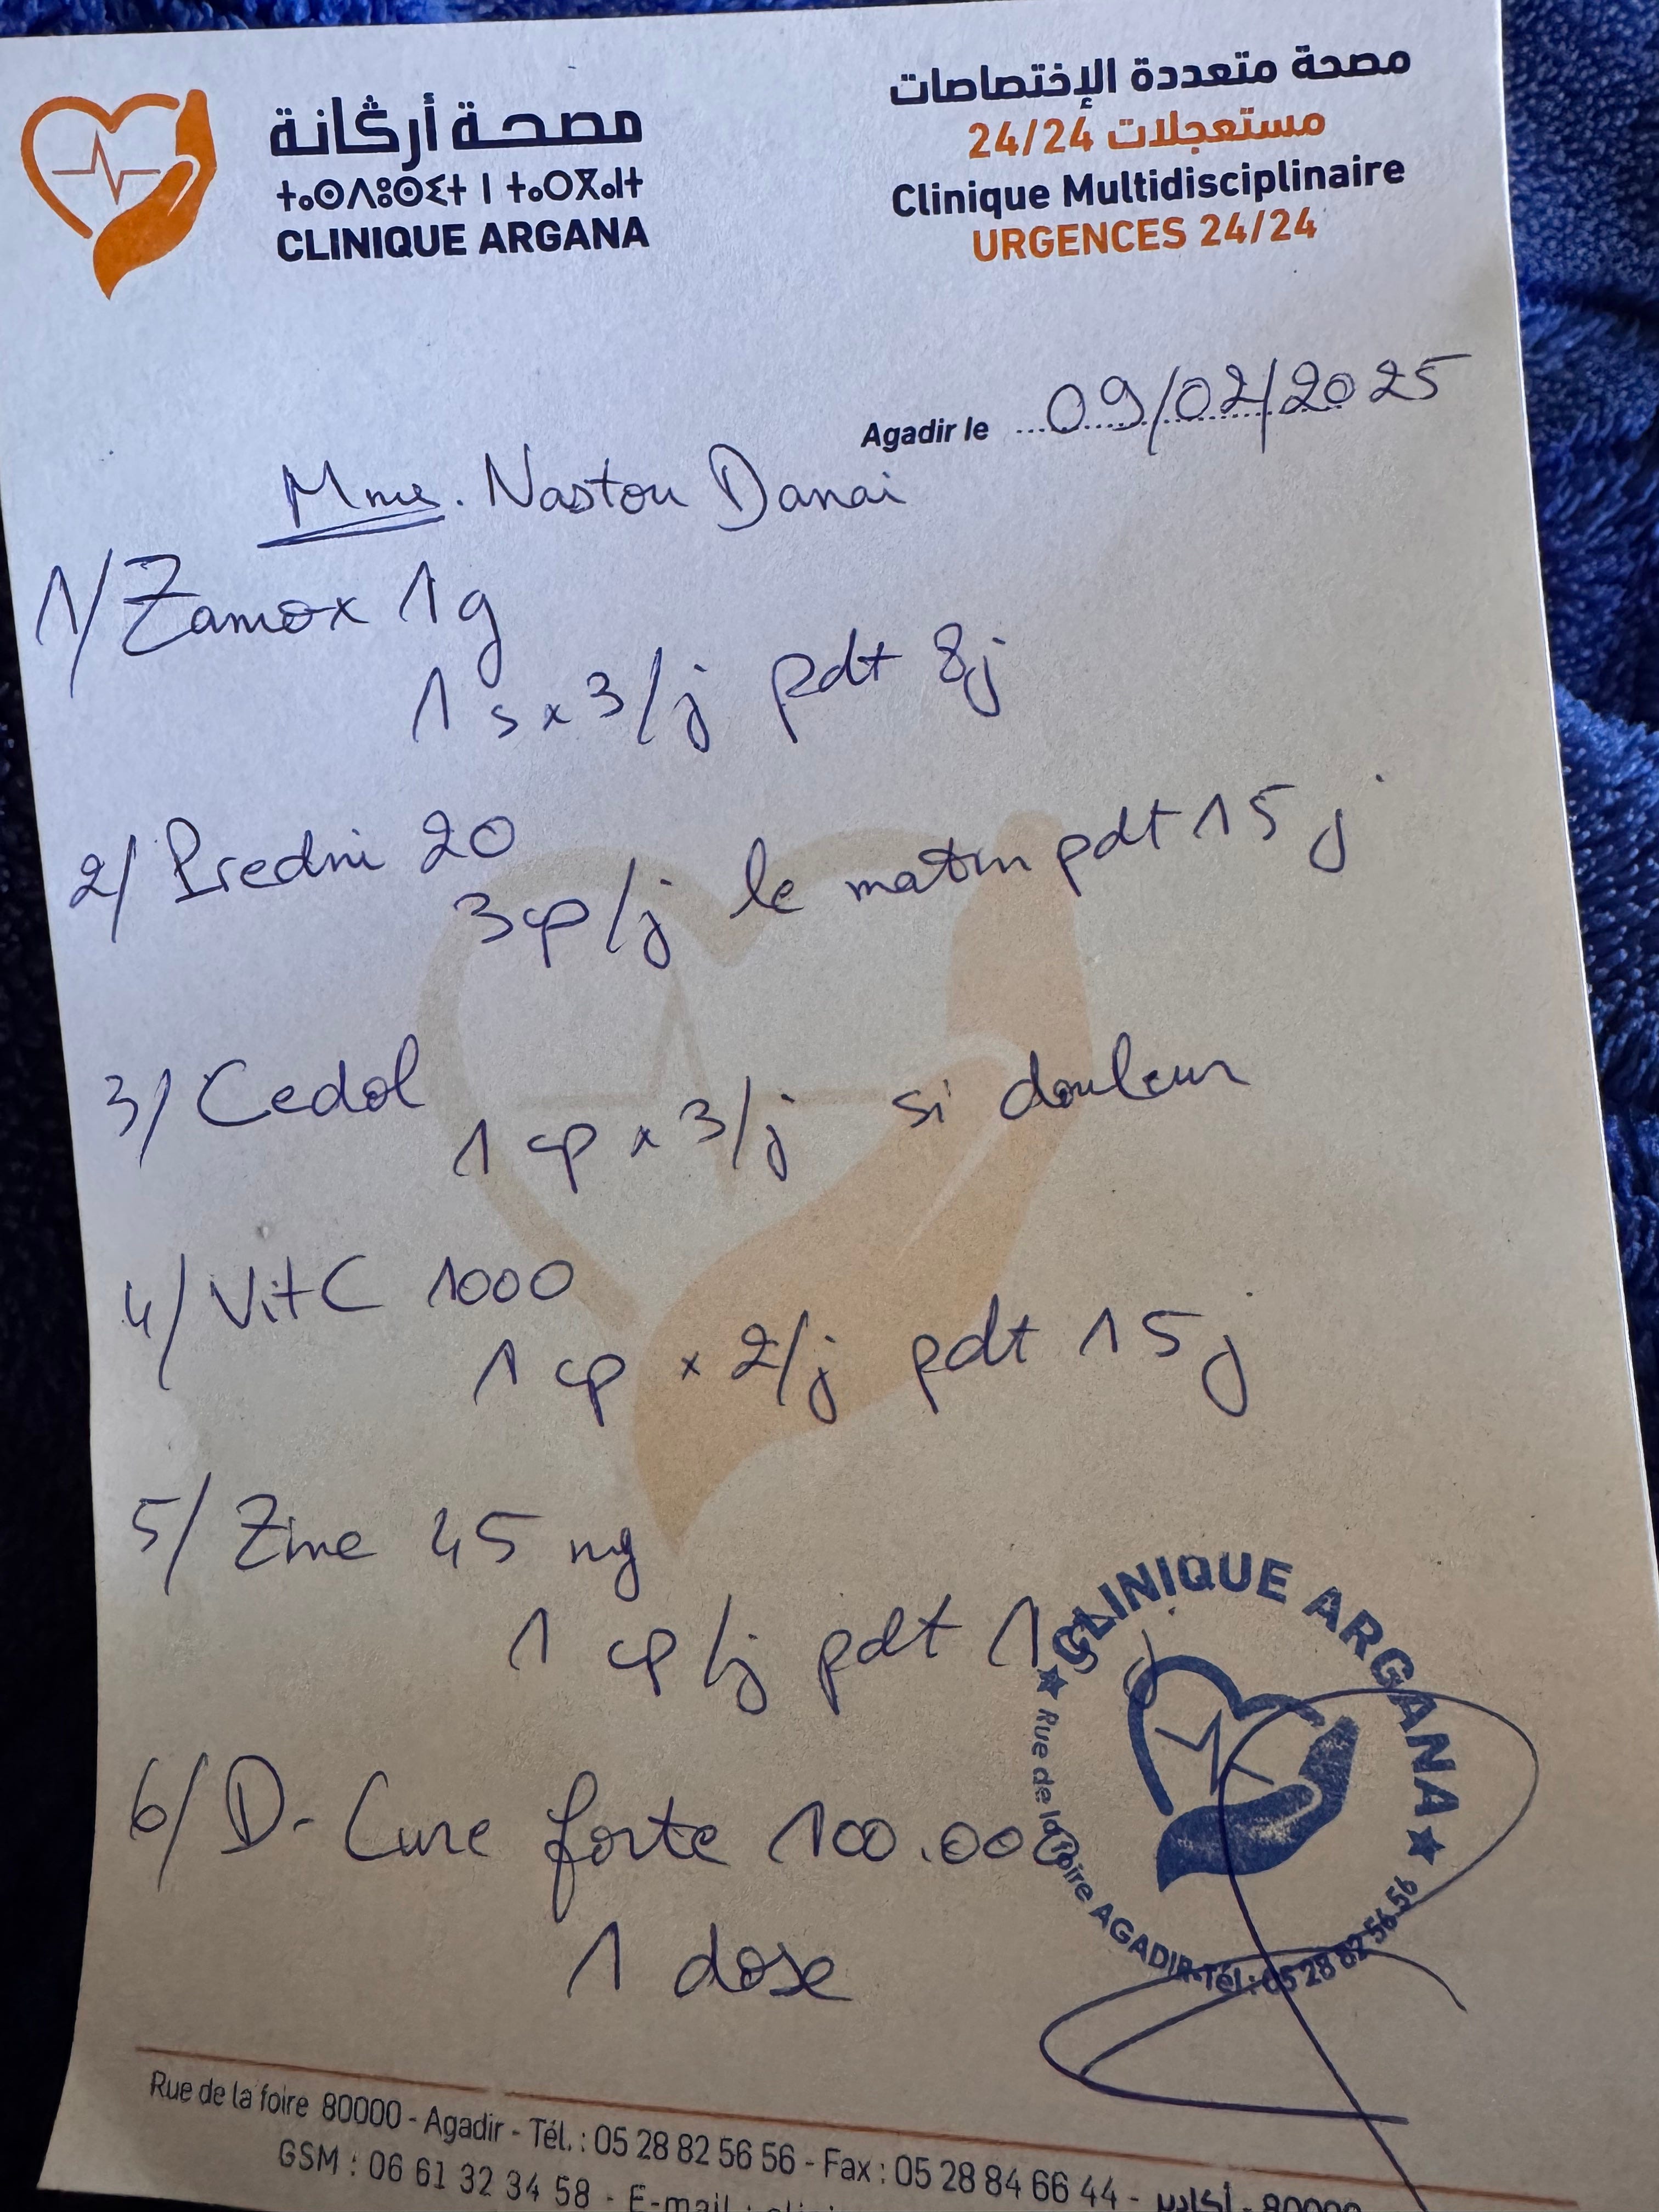 مصحة أرڭانة
ⵜⴰⵙⴷⵓⵙⵉⵜ ⵏ ⵜⴰⵔⴳⴰⵏⵜ
CLINIQUE ARGANA
مصحة متعددة الإختصاصات
مستعجلات 24/24
Clinique Multidisciplinaire
URGENCES 24/24
Agadir le 09/02/2025
Mme. Nastou Danai
1/ Zamox 1g
1 s x 3/j pdt 8j
2/ Predni 20
3cp/j le matin pdt 15 j
3/ Cedol
1 cp x 3/j si douleur
4/ Vit C 1000
1 cp x 2/j pdt 15 j
5/ Zinc 45 mg
1 cp/j pdt
6/ D-Cure forte 100.000
1 dose
CLINIQUE ARGANA
Rue de la foire AGADIR-Tél: 05 28 82 56 56
Rue de la foire 80000 - Agadir - Tél. : 05 28 82 56 56 - Fax : 05 28 84 66 44 - أكادير - 80000
GSM : 06 61 32 34 58 - E-mail :